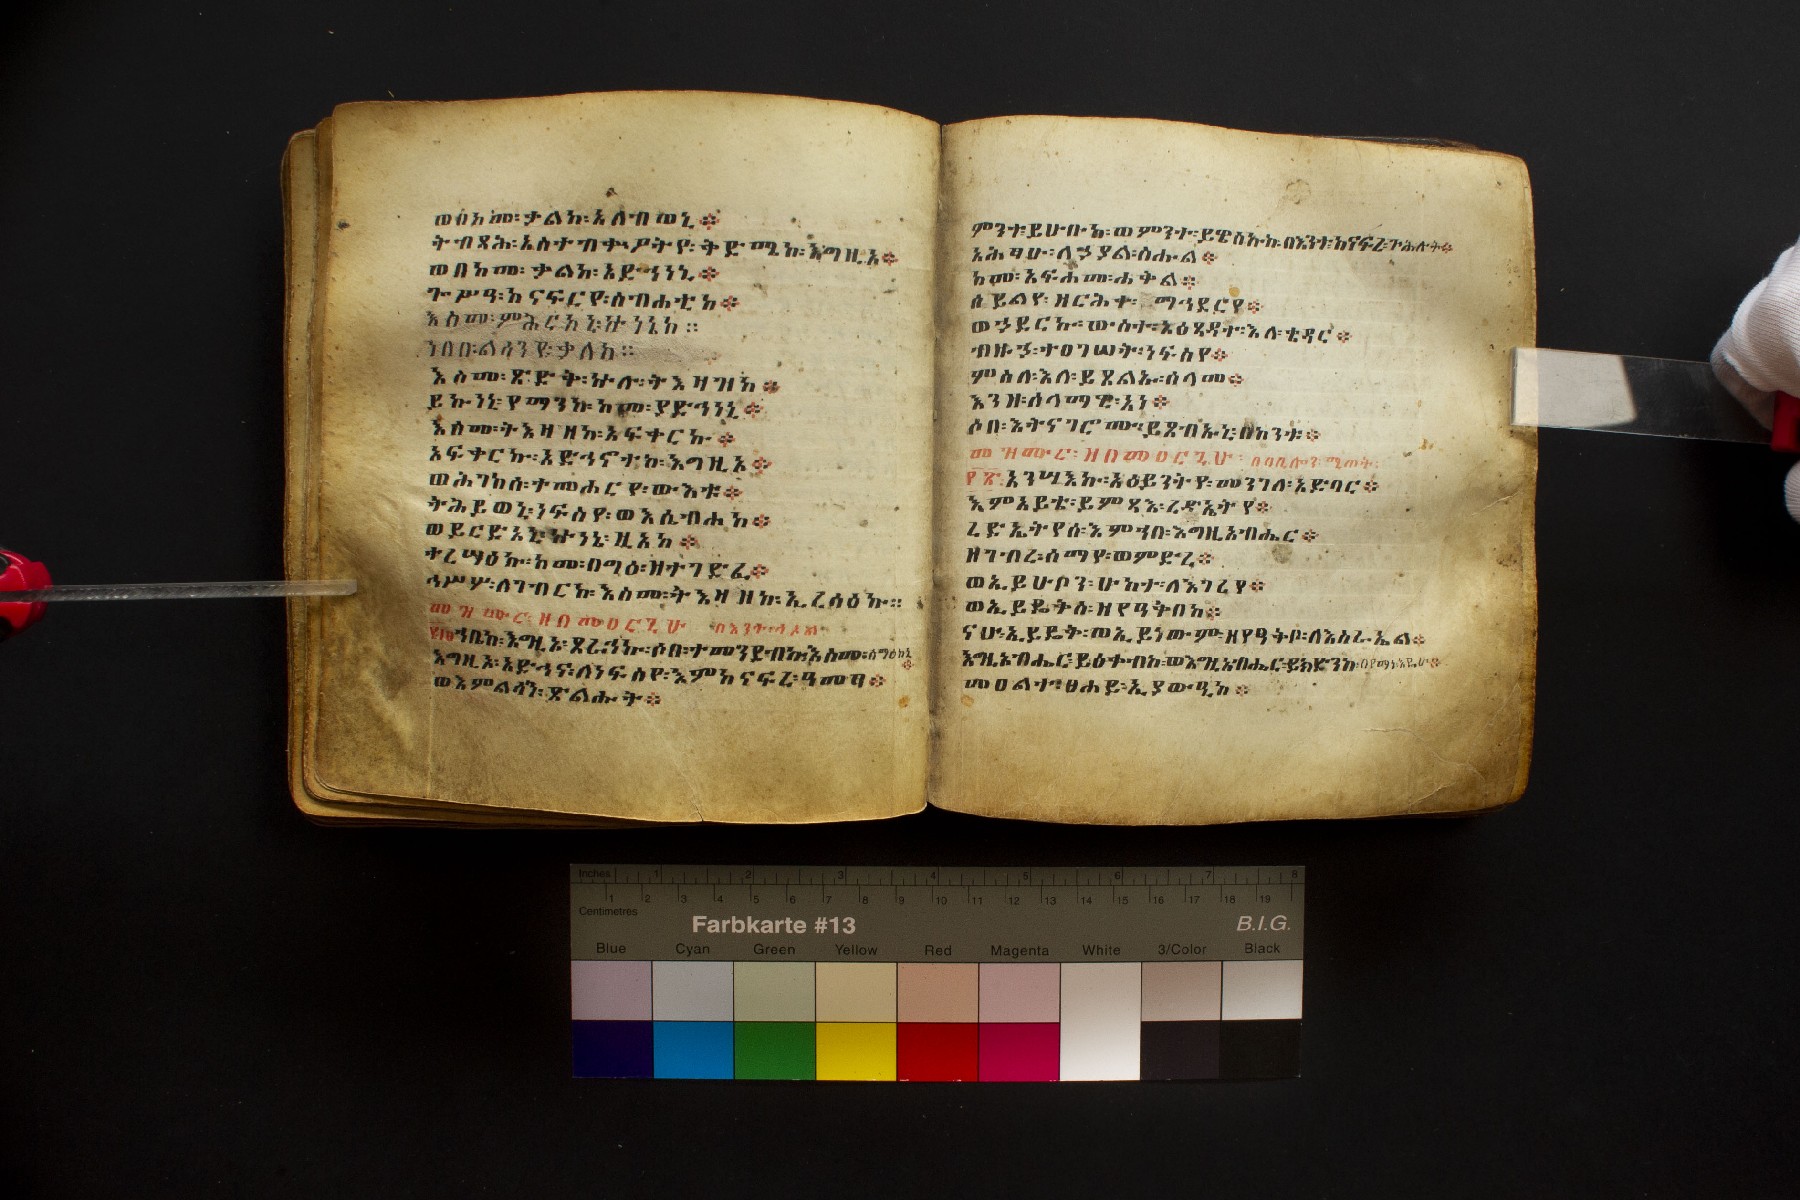 ወበከመ፡ቃልከ፡አለብወኒ፨
ትብጻሕ፡አስተብቍዖትየ፡ቅድሜከ፡እግዚኦ፨
ወበከመ፡ቃልከ፡አድኅነኒ፨
ጐሥዓ፡ከናፍርየ፡ስብሐቲከ፨
እስመ፡ምሕርከኒ፡ኵነኔከ።
ነበበ፡ልሳንየ፡ቃለከ።
እስመ፡ጽድቅ፡ኵሉ፡ትእዛዝከ፨
ይኩነኒ፡የማንከ፡ከመ፡ያድኅነኒ፨
እስመ፡ትእዛዘከ፡አፍቀርኩ፨
አፍቀርኩ፡አድኅኖተከ፡እግዚኦ፨
ወሕገከሰ፡ተመሐርየ፡ውእቱ፨
ትሕይወኒ፡ነፍስየ፡ወእሴብሐከ፨
ወይርድአኒ፡ኵነኔ፡ዚአከ፨
ተረሣዕኩ፡ከመ፡በግዕ፡ዘተገድፈ፨
ኅሥሦ፡ለገብርከ፡እስመ፡ትእዛዘከ፡ኢረሳዕኩ።
መዝሙር፡ዘበመዐርጊሁ
ኀቤከ፡እግዚኦ፡ጸራኅኩ፡ሶበ፡ተመንደብኩ፡እስመ፡ሰማዕከኒ
እግዚኦ፡አድኅና፡ለነፍስየ፡እምከናፍረ፡ዓመፃ፨
ወእምልሳን፡ጽልሑት፨
ምንተ፡ይሁቡከ፡ወምንተ፡ይዌስኩከ፡በእንተ፡ከናፍረ፡ጕሕሉት፨
አሕፃሁ፡ለኃያል፡ስሑል፨
ከመ፡አፍሐመ፡ሐቅል፨
ሰይልየ፡ዘርሕቀ፡ማኅደርየ፨
ወኃደርኩ፡ውስተ፡አዕጻዳተ፡እለ፡ቄዳር፨
ብዙኃ፡ተዐገሠት፡ነፍስየ፨
ምስለ፡እለ፡ይጸልኡ፡ሰላመ፨
እንዘ፡ሰላማዊ፡አነ፨
ሶበ፡እትናገሮሙ፡ይጸብኡኒ፡በከንቱ፨
መዝሙር፡ዘበመዐርጊሁ፡በባቢሎን፡ሚጠት፡
አንሣእኩ፡አዕይንትየ፡መንገለ፡አድባር፨
እምአይቴ፡ይምጻእ፡ረድኤትየ፨
ረድኤትየሰ፡እምኀበ፡እግዚአብሔር፨
ዘገብረ፡ሰማየ፡ወምድረ፨
ወኢይሁቦን፡ሁከተ፡ለእገረየ፨
ወኢይዴቅስ፡ዘየዓቅበከ፨
ናሁ፡ኢይዴቅ፡ወኢይነውም፡ዘየዓቅቦ፡ለእስራኤል፨
እግዚአብሔር፡ይዕቀብከ፡ወእግዚአብሔር፡ይክድንከ፡በየማነ፡እዴሁ፨
መዐልተ፡ፀሐይ፡ኢያውዒከ፨
Inches 1 2 3 4 5 6 7 8
1 2 3 4 5 6 7 8 9 10 11 12 13 14 15 16 17 18 19
Centimetres
Farbkarte #13 B.I.G.
Blue Cyan Green Yellow Red Magenta White 3/Color Black